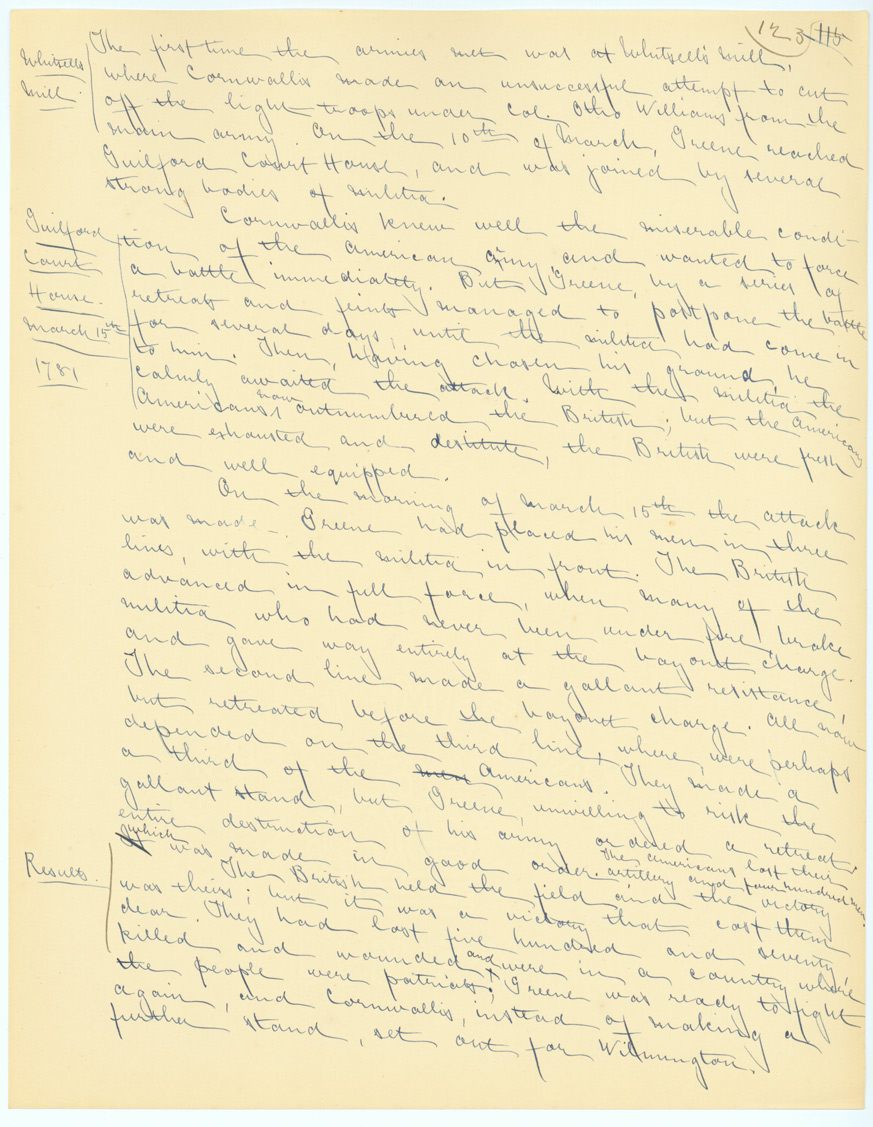 123 115
Whitsell's
Mill
The first time the armies met was at Whitsell's Mill,
where Cornwallis made an unsuccessful attempt to cut
off the light troops under Col. Otho Williams from the
main army. On the 10th of March, Greene reached
Guilford Court House, and was joined by several
strong bodies of militia.
Guilford
Court
House.
March 15th
1781
Cornwallis knew well the miserable condi-
tion of the American army and wanted to force
a battle immediately. But Greene, by a series of
retreats and feints managed to postpone the battle
for several days, until the militia had come in
to him. Then, having chosen his ground, he
calmly awaited the attack. With the militia the
Americans now outnumbered the British; but the Americans
were exhausted and destitute, the British were fresh
and well equipped.
On the morning of March 15th the attack
was made. Greene had placed his men in three
lines, with the militia in front. The British
advanced in full force, when many of the
militia who had never been under fire, brake
and gave way entirely at the bayonet charge.
The second line made a gallant resistance,
but retreated before the bayonet charge. All now
depended on the third line, where were perhaps
a third of the men Americans. They made a
gallant stand, but Greene, unwilling to risk the
entire destruction of his army ordered a retreat,
which was made in good order. The Americans lost their
artillery and four hundred men.
Results.
The British held the field and the victory
was theirs; but it was a victory that cost them
dear. They had lost five hundred and seventy
killed and wounded, and were in a country where
the people were patriots; Greene was ready to fight
again, and Cornwallis, instead of making a
further stand, set out for Wilmington.